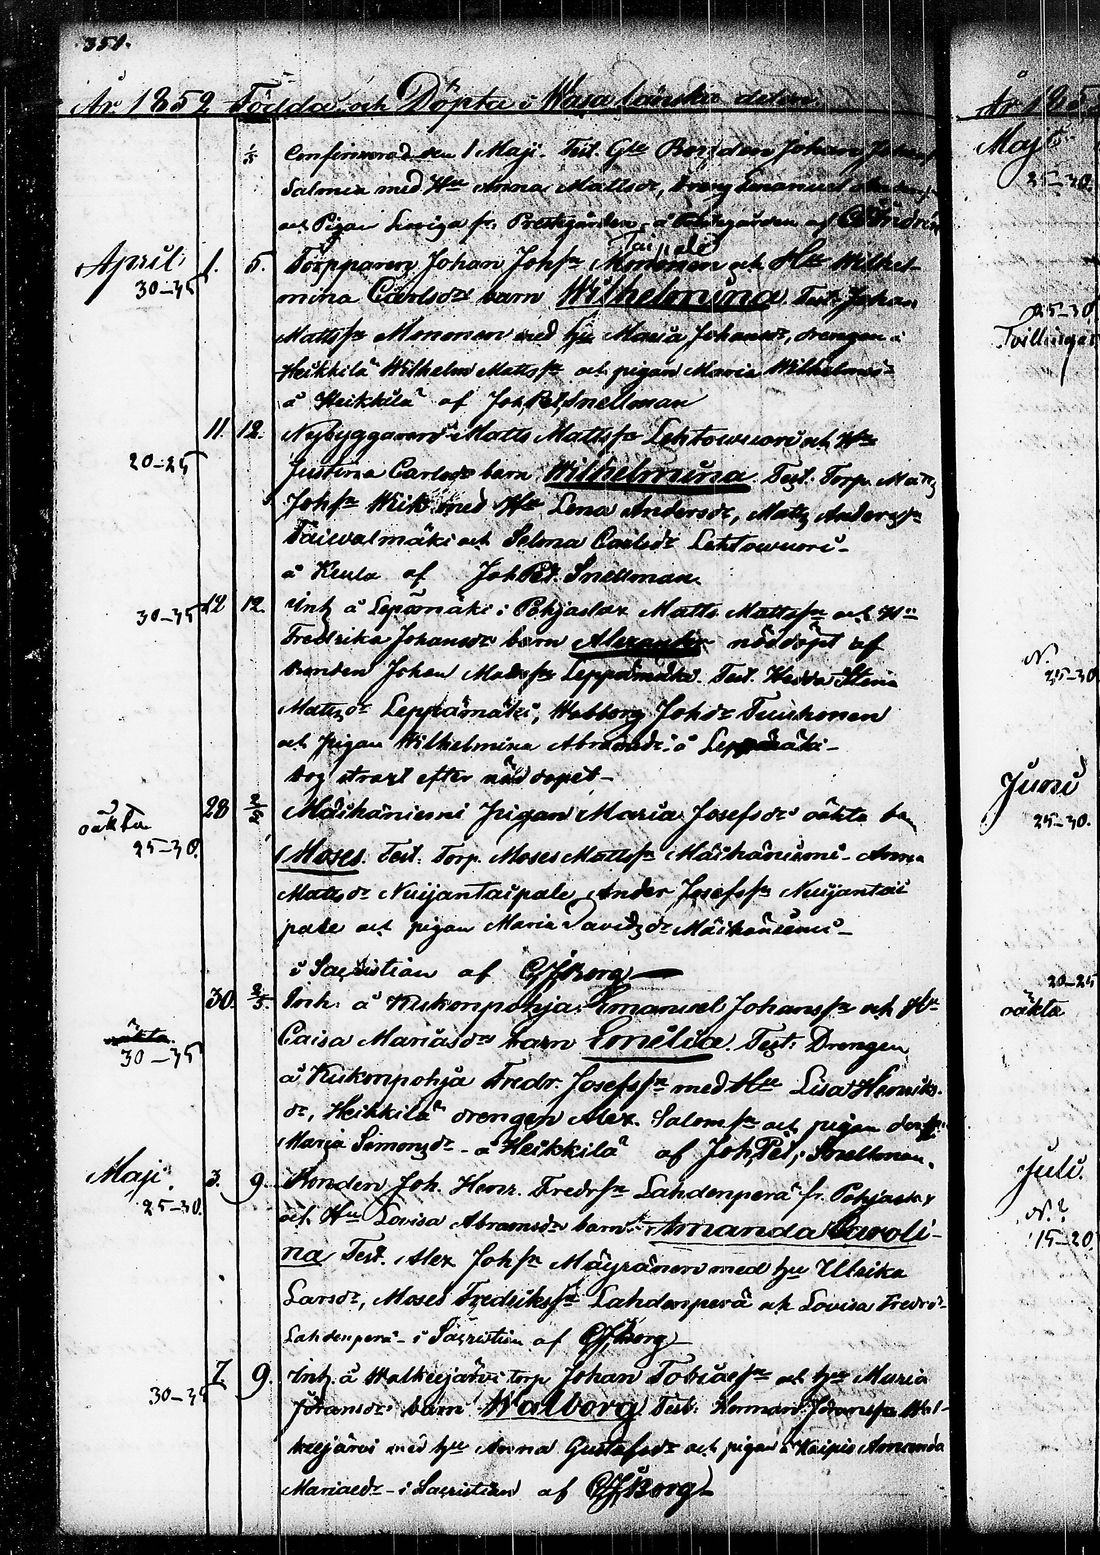 351.
År 1852 Födda och Döpta i Wasa länska delen
1/5 Confirmerad den 1 Maji. Test. Gte Bonden Johan
Salonia med Hu Anna Mattsdr, Dreng Emanuel
och Pigan Loviga fr. Prestgården, å Prestgården af
Taipale
April 1. 5. Torpparen Johan Johsson Mononen och Hu Wilhel-
30-35 mina Carlsdr barn Wilhelmina. Test. Johan
Mattsson Mononen med hu Maria Johansdr, drengen i
Heikkilä Wilhelm Mattsson och pigan Maria Wilhelms
å Heikkilä af Joh. Pet. Snellman
11. 12. Nybyggaren Matts Mattsson Lehtowuori och Hu
20-25 Justina Carlsdr barn Wilhelmina Test. Torp. Matts
Johsson Wiik med Hu Lena Andersdr, Matts Andersson
Taiwalmäki och Selma Carlsdr Lehtowuori-
å Keula af Joh. Pet. Snellman
30-35 12 12. Inh å Lepämäki i Pohjaslax Matts Mattsson och Hu
Fredrika Johansdr barn Alexander nöddöpt af
Bonden Johan Mattsson Leppämäki. Test. Hedda Stina
Mattsdr Leppämäki, Walborg Johsdr Tuuhonen
och Pigan Wilhelmina Abramsdr å Leppämäki-
dog straxt efter nöddopet-
28 2/5 Mäihäniemi Pigan Maria Josefsdr oäkta barn
oäkta
25-30. Moses. Test. Torp. Moses Mattsson Mäihäniemi- Anna
Mattsdr Nuijantaipale, Ander Josefsson Nuijantai
pale och pigan Maria Davidsdr Mäihäniemi-
i Sacristian af CJJ Borg
30. 2/5. Inh. å Kiskonpohja Emanuel Johansson och Hu
oäkta.
30-35 Caisa Mariasdr barn Emelia. Test: Drengen
å Kiskonpohja Fredr. Josefsson med Hu Lisa Henriks
dr, Heikkilä drengen Alex. Salomsson och pigan
Maria Simonsdr - å Heikkilä af Joh. Pet. Snellman.
Maji. 3. 9. Bonden Joh. Henr. Fredrsson Lahdenperä fr. Pohjaslax
25-30. och Hu Lovisa Abramsdr barn Amanda Caroli-
na Test. Alex Johsson Mäyränen med hu Ulrika
Larsdr, Moses Fredriksson Lahdenperä och Lovisa Fredrsdr
Lahdenperä - i Sacristian af CJJ Borg
7 9. Inh å Walkeejärvi torp Johan Tobiasson och hu Maria
30-35 Göransdr barn Walborg Test: Herman Göransson Wal-
keejärvi med hu Anna Gustafsdr och pigan i Kaipio Amanda
Mariaedr - i Sacristian af CJJ Borg
År 185
Maj
25-30.
25-30
Tvillingar
N.
25-30
Juni
25-30.
20-25
oäkta
Juli.
N.
15-20